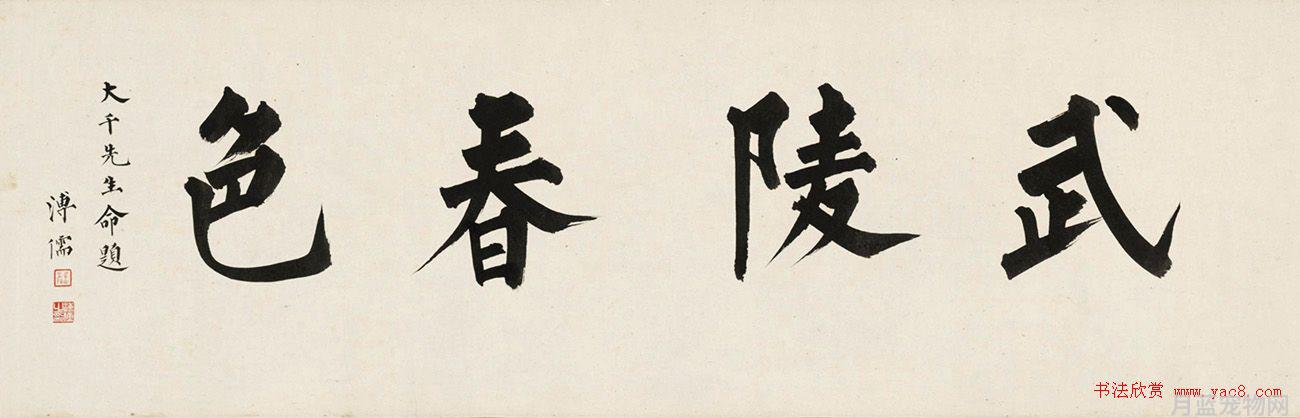 武陵春色
大千先生命題
溥儒
书法欣赏 www.yac8.com
月蓝宠物网